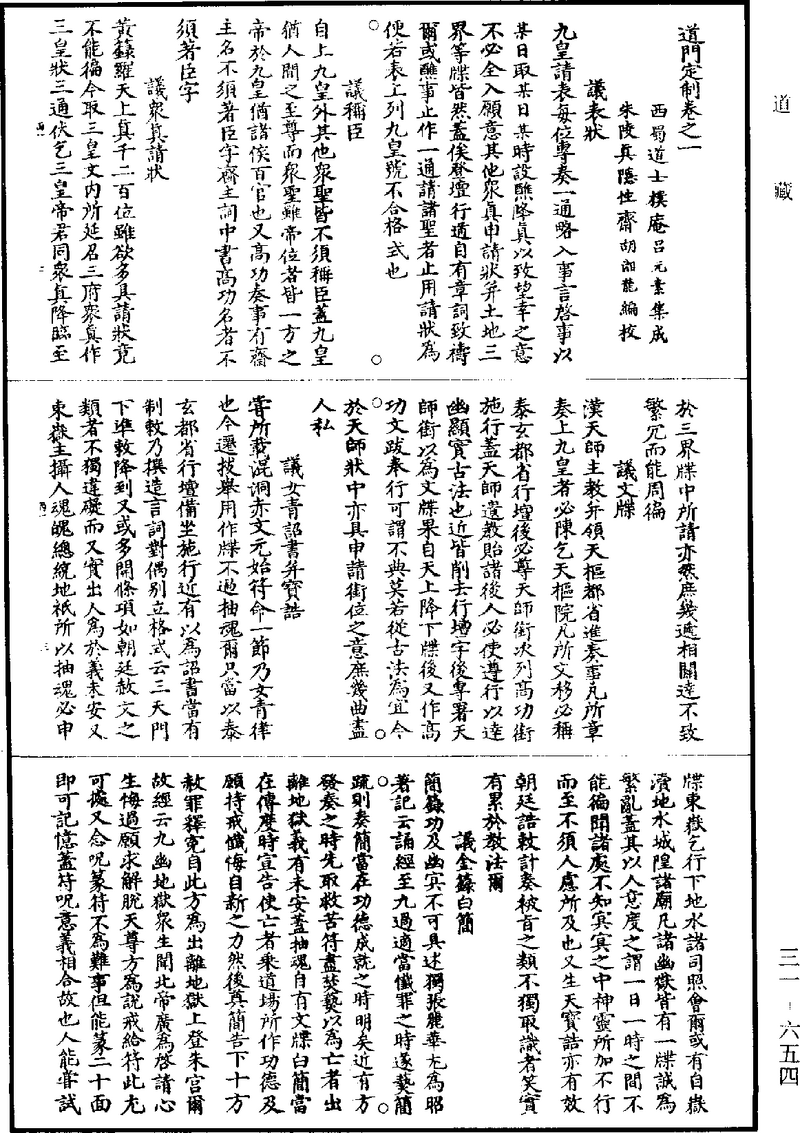 道藏
三一－六五四
道門定制卷之一
西蜀道士樸庵呂元素集成
朱陵真隱性齋胡湘龍編校
議表狀
九皇請表每位專奏一通略入事言啓事以
某日取某日某時設醮降真以致望幸之意
不必全入願意其他衆真申請狀并土地三
界等牒皆然蓋俟登壇行道自有章詞致禱
爾或醮事止作一通請諸聖者止用請狀爲
便若表上列九皇號不合格式也
議稱臣
自上九皇外其他衆聖皆不須稱臣蓋九皇
猶人間之至尊而衆聖雖帝位者皆一方之
帝於九皇猶諸侯百官也又高功奏事有齋
主名不須著臣字齋主詞中書高功名者不
須著臣字
議衆真請狀
黃籙羅天上真千二百位雖欲多具請狀竟
不能徧今取三皇文内所延召三府衆真作
三皇狀三通伏乞三皇帝君同衆真降臨至
於三界牒中所請亦然庶幾遞相關達不致
繁冗而能周徧
議文牒
漢天師主教并領天樞都省進奏事凡所章
奏上九皇者必陳乞天樞院凡所文移必稱
泰玄都省行壇後必尊天師銜次列高功銜
施行蓋天師遺教貽諸後人必使遵行以達
幽顯實古法也近皆削去行壇字後專署天
師銜以爲文牒果自天上降下牒後又作高
功文跋奉行可謂不典莫若從古法爲宜今
於天師狀中亦具申請銜位之意庶幾曲盡
人私
議女青詔書并寶誥
甞所載混洞赤文元始符命一節乃女青律
也今遷拔舉用作牒不過抽魂爾只當以泰
玄都省行壇備坐施行近有以爲詔書當有
制敕乃撰造言詞對偶别立格式云三天門
下準敕降到又或多開條項如朝廷赦文之
類者不獨違礙而又實出人爲於義未安又
東嶽主攝人魂魄總統地祇所以抽魂必申
牒東嶽乞行下地水諸司照會爾或有自嶽
瀆地水城隍諸廟凡諸幽獄皆有一牒誠爲
繁亂蓋其以人意度之謂一日一時之間不
能徧開諸處不知冥冥之中神靈所加不行
而至不須人慮所及也又生天寶誥亦有效
朝廷誥敕計奏被旨之類不獨取識者笑實
有累於教法爾
議金籙白簡
簡籙功及幽冥不可具述獨張麗華尤爲昭
著記云誦經至九過適當懺罪之時遂爇簡
疏則奏簡當在功德成就之時明矣近有方
發奏之時先取救苦符盡焚爇以爲亡者出
離地獄義有未安蓋抽魂自有文牒白簡當
在傳度時宣告使亡者乘道場所作功德及
願持戒懺悔自新之力然後真簡告下十方
赦罪釋寃自此方爲出離地獄上登朱宮爾
故經云九幽地獄衆生聞此帝廣爲啓請心
生悔過願求解脫天尊方爲說戒給符此尤
可據又念呪篆符不爲難事但能篆二十面
即可記憶蓋符呪意義相合故也人能嘗試